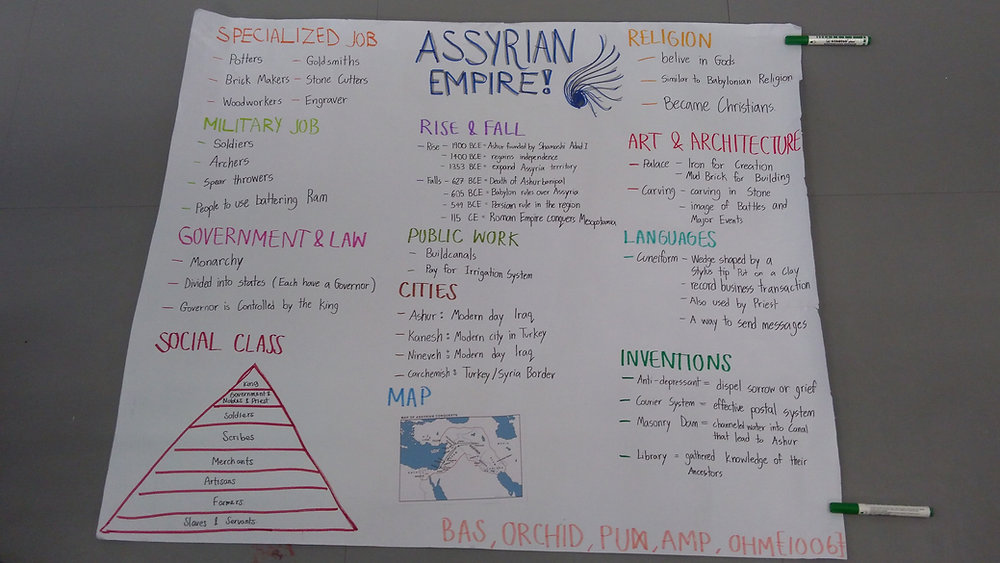 SPECIALIZED JOB
- Potters - Goldsmiths
- Brick Makers - Stone Cutters
- Woodworkers - Engraver
MILITARY JOB
- Soldiers
- Archers
- Spear throwers
- People to use battering Ram
GOVERNMENT & LAW
- Monarchy
- Divided into states (Each have a Governor)
- Governor is Controlled by the King
SOCIAL CLASS
King
Government &
Nobles & Priest
Soldiers
Scribes
Merchants
Artisans
Farmers
Slaves & Servants
ASSYRIAN
EMPIRE!
RISE & FALL
- Rise - 1900 BCE = Ashur founded by Shamashi Adad I
- 1400 BCE = regains independence
- 1353 BCE = expand Assyria territory
- Falls - 627 BCE = Death of Ashurbanipal
- 605 BCE = Babylon rules over Assyria
- 549 BCE = Persian rule in the region
- 115 CE = Roman Empire conquers Mesopotamia
PUBLIC WORK
- Build canals
- Pay for Irrigation System
CITIES
- Ashur : Modern day Iraq
- Kanesh : Modern city in Turkey
- Nineveh : Modern day Iraq
- Carchemish : Turkey/Syria Border
MAP
MAP OF ASSYRIAN CONQUESTS
RELIGION
- belive in Gods
- Similar to Babylonian Religion
- Became Christians
ART & ARCHITECTURE
- Palace - Iron for Creation
- Mud Brick for Building
- Carving - carving in Stone
- image of Battles and
Major Events
LANGUAGES
- Cuneiform - Wedge shaped by a
Stylus tip Put on a Clay
- record business transaction
- Also used by Priest
- A way to send messages
INVENTIONS
- Anti-depressant = dispel sorrow or grief
- Courier System = effective postal system
- Masonry Dam = channeled water into Canal
that lead to Ashur
- Library = gathered knowledge of their
Ancestors
BAS, ORCHID, PUN, AMP, OHM